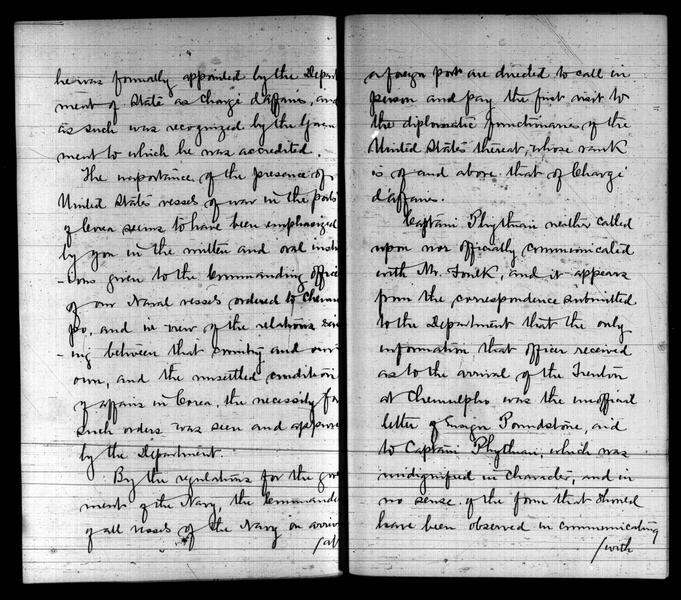 he was formally appointed by the Depart
ment of State as Chargé d'affaires, and
as such was recognized by the Govern
ment to which he was accredited.
The importance of the presence of
United States vessels of war in the ports
of Corea seems to have been emphasized
by you in the written and oral instr
-ions given to the Commanding office
of our Naval vessels ordered to Chemu
po, and in view of the relations exis
-ing between that country and our
own, and the unsettled condition
of affairs in Corea, the necessity for
such orders was seen and approve
by the Department.
By the regulations for the gov
ment of the Navy, the Commande
of all vessels of the Navy on arriv
/at
a foreign port are directed to call in
person and pay the first visit to
the diplomatic functionaries of the
United States thereat, whose rank
is of and above that of Chargé
d'affaires.
Captain Phythian neither called
upon nor officially communicated
with Mr. Foulk, and it appears
from the correspondence submitted
to the Department that the only
information that officer received
as to the arrival of the Trenton
at Chemulpho was the unofficial
letter of Ensign Poundstone, aid
to Captain Phythian, which was
undignified in character, and in
no sense of the form that should
have been observed in communicating
/with